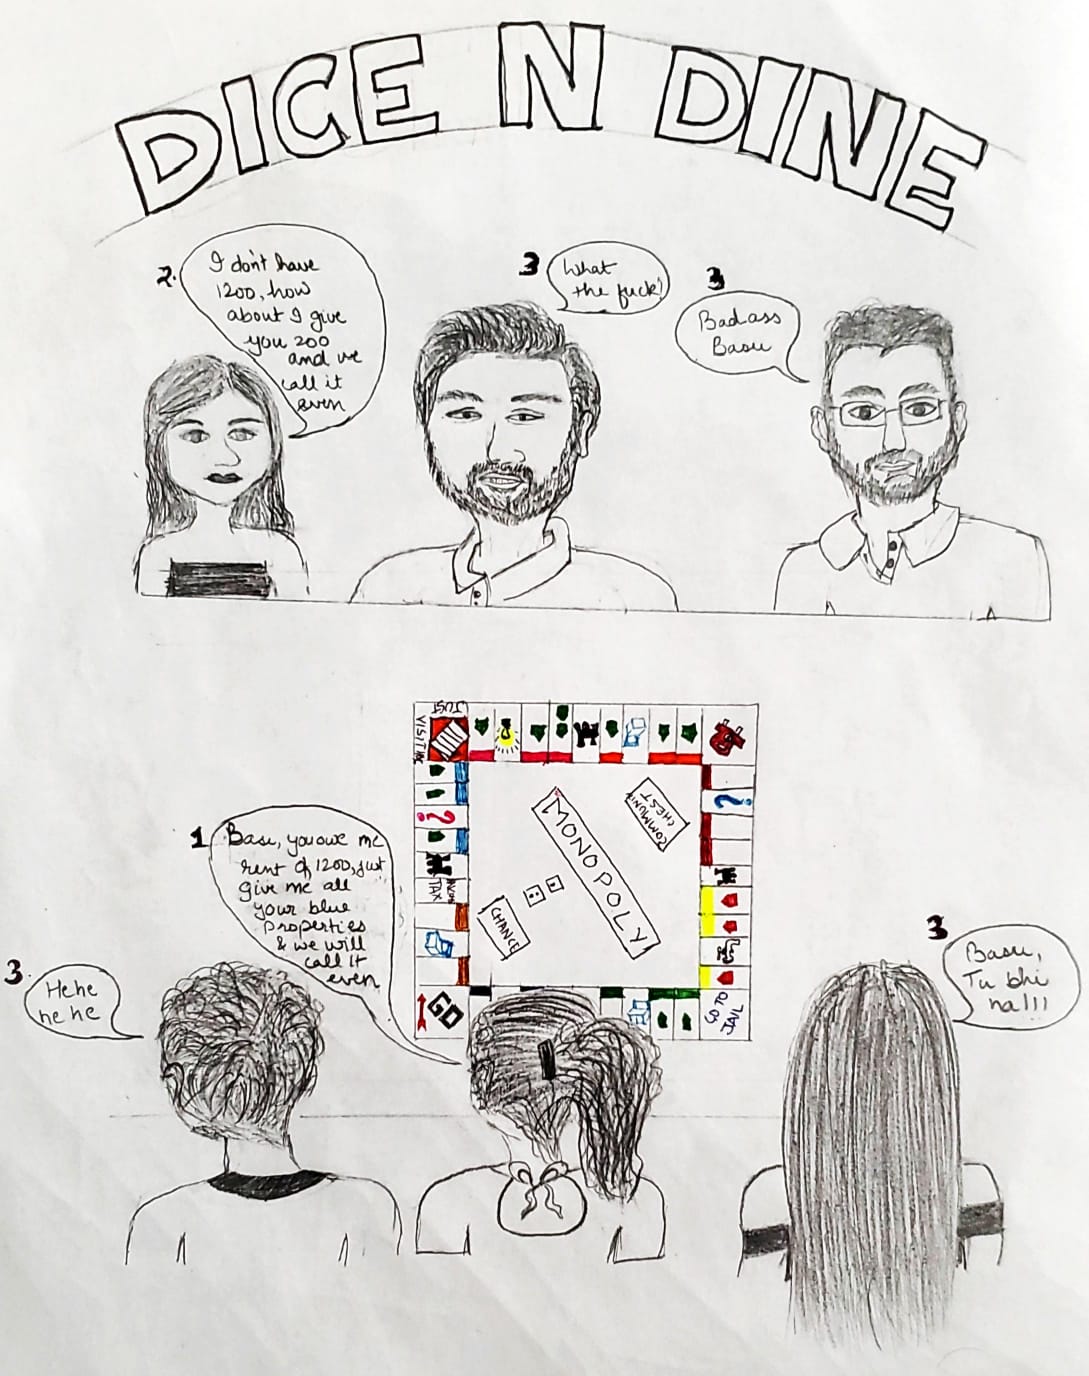 DICE N DINE
2.
I don't have
1200, how
about I give
you 200
and we
call it
even
3
What
the fuck!
3
Badass
Basu
JUST
VISITING
?
?
COMMUNITY
CHEST
MONOPOLY
CHANCE
TAX
GO
GO
TO
JAIL
1
Basu, you owe me
rent of 1200, just
give me all
your blue
properties
& we will
call it
even
3.
Hehe
he he
3
Basu,
Tu bhi
na!!!